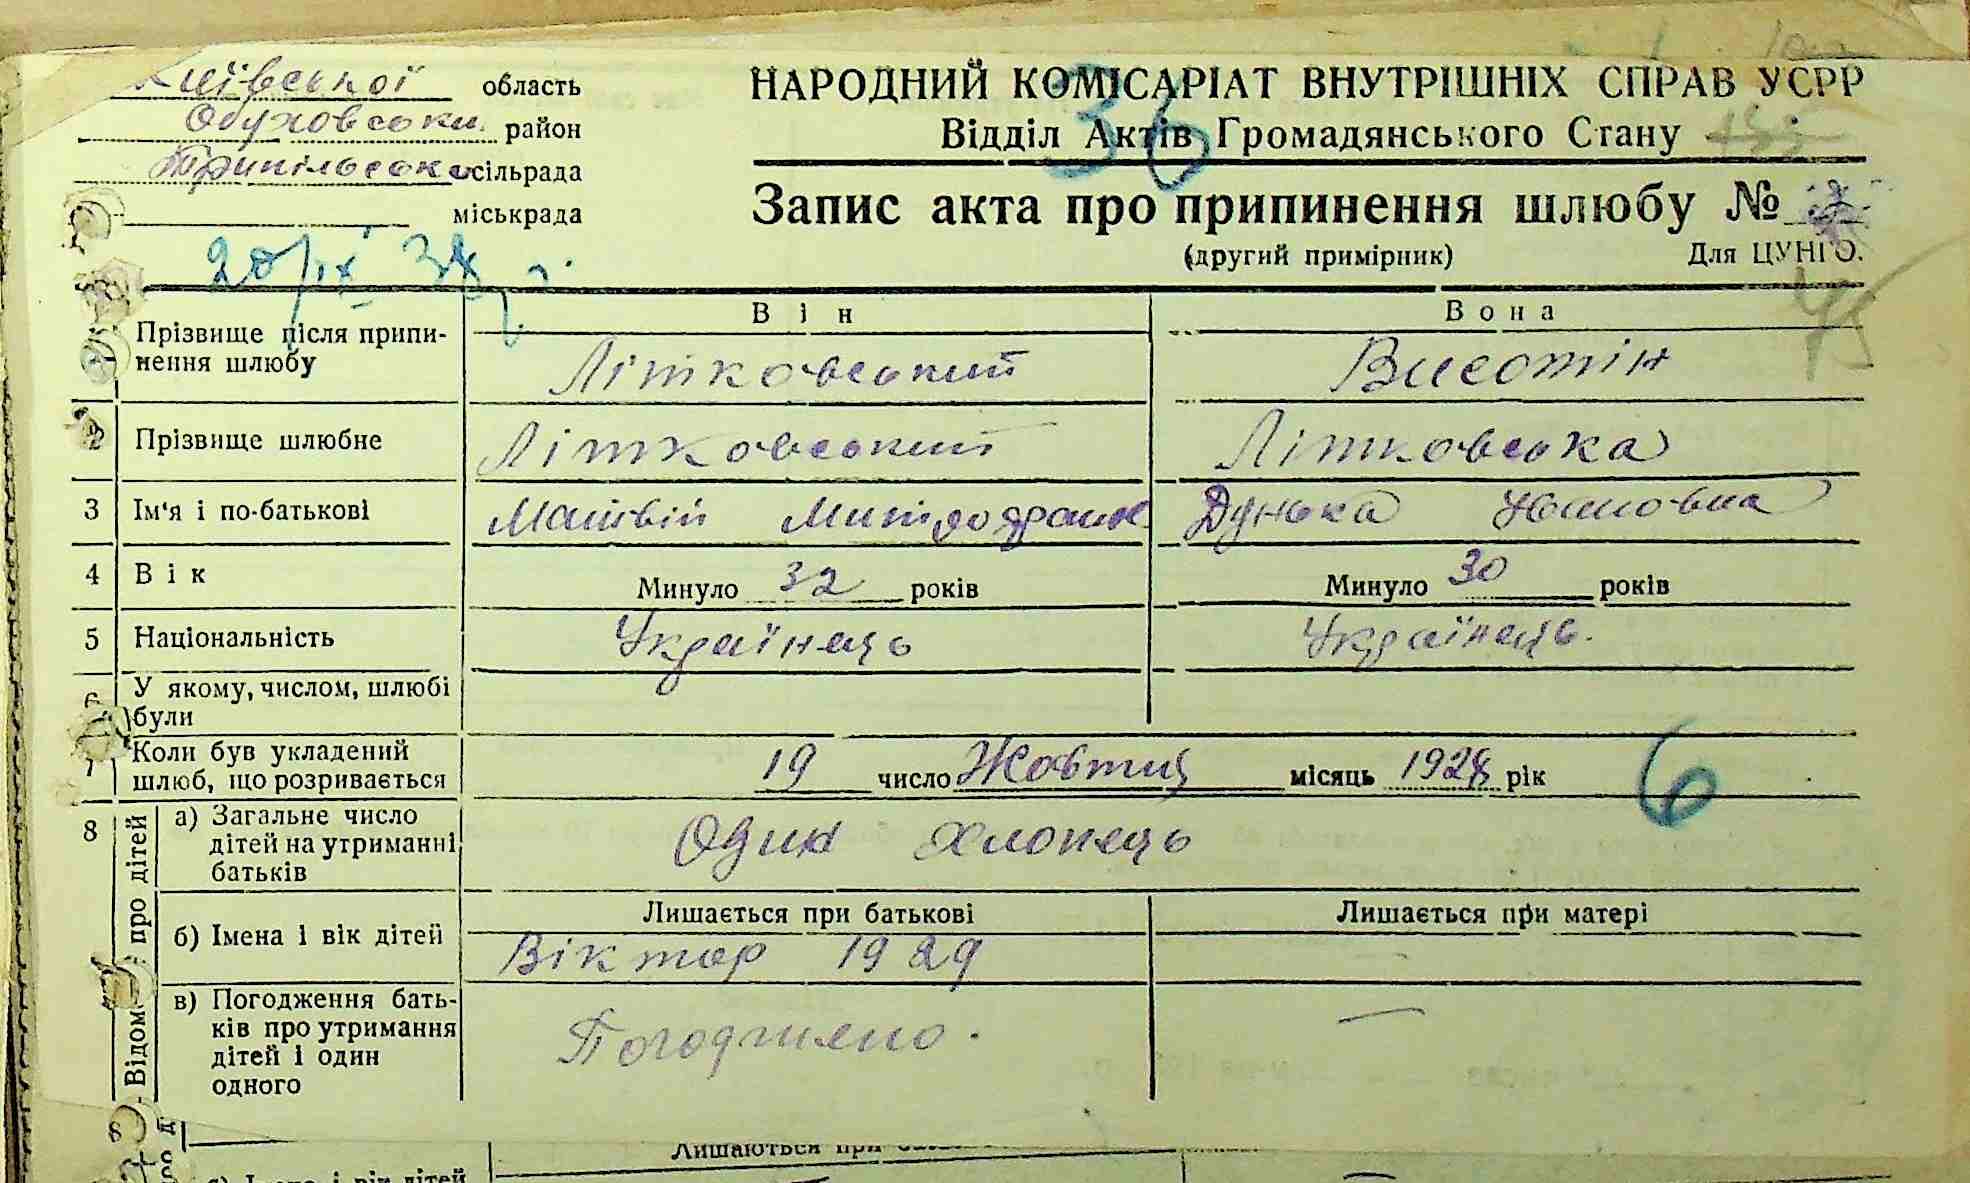 Київської область
Обуховськи район
Трипільська сільрада
міськрада
НАРОДНИЙ КОМІСАРІАТ ВНУТРІШНІХ СПРАВ УСРР
36
Відділ Актів Громадянського Стану
Запис акта про припинення шлюбу №
(другий примірник) Для ЦУНГО.
20/IX
Він Вона
1 Прізвище після припинення шлюбу Літковський Висотін
2 Прізвище шлюбне Літковський Літковська
3 Ім'я і по-батькові Матвій Дунька
4 Вік Минуло 32 років Минуло 30 років
5 Національність Українець Українець.
6 У якому, числом, шлюбі
були
7 Коли був укладений
шлюб, що розривається 19 число Жовтня місяць рік
6
8 про дітей
а) Загальне число
дітей на утриманні
батьків Один хлопець
Лишається при батькові Лишається при матері
б) Імена і вік дітей Віктор 1929
в) Погодження бать-
ків про утримання
дітей і один
одного Погоджено. —
Лишаються при